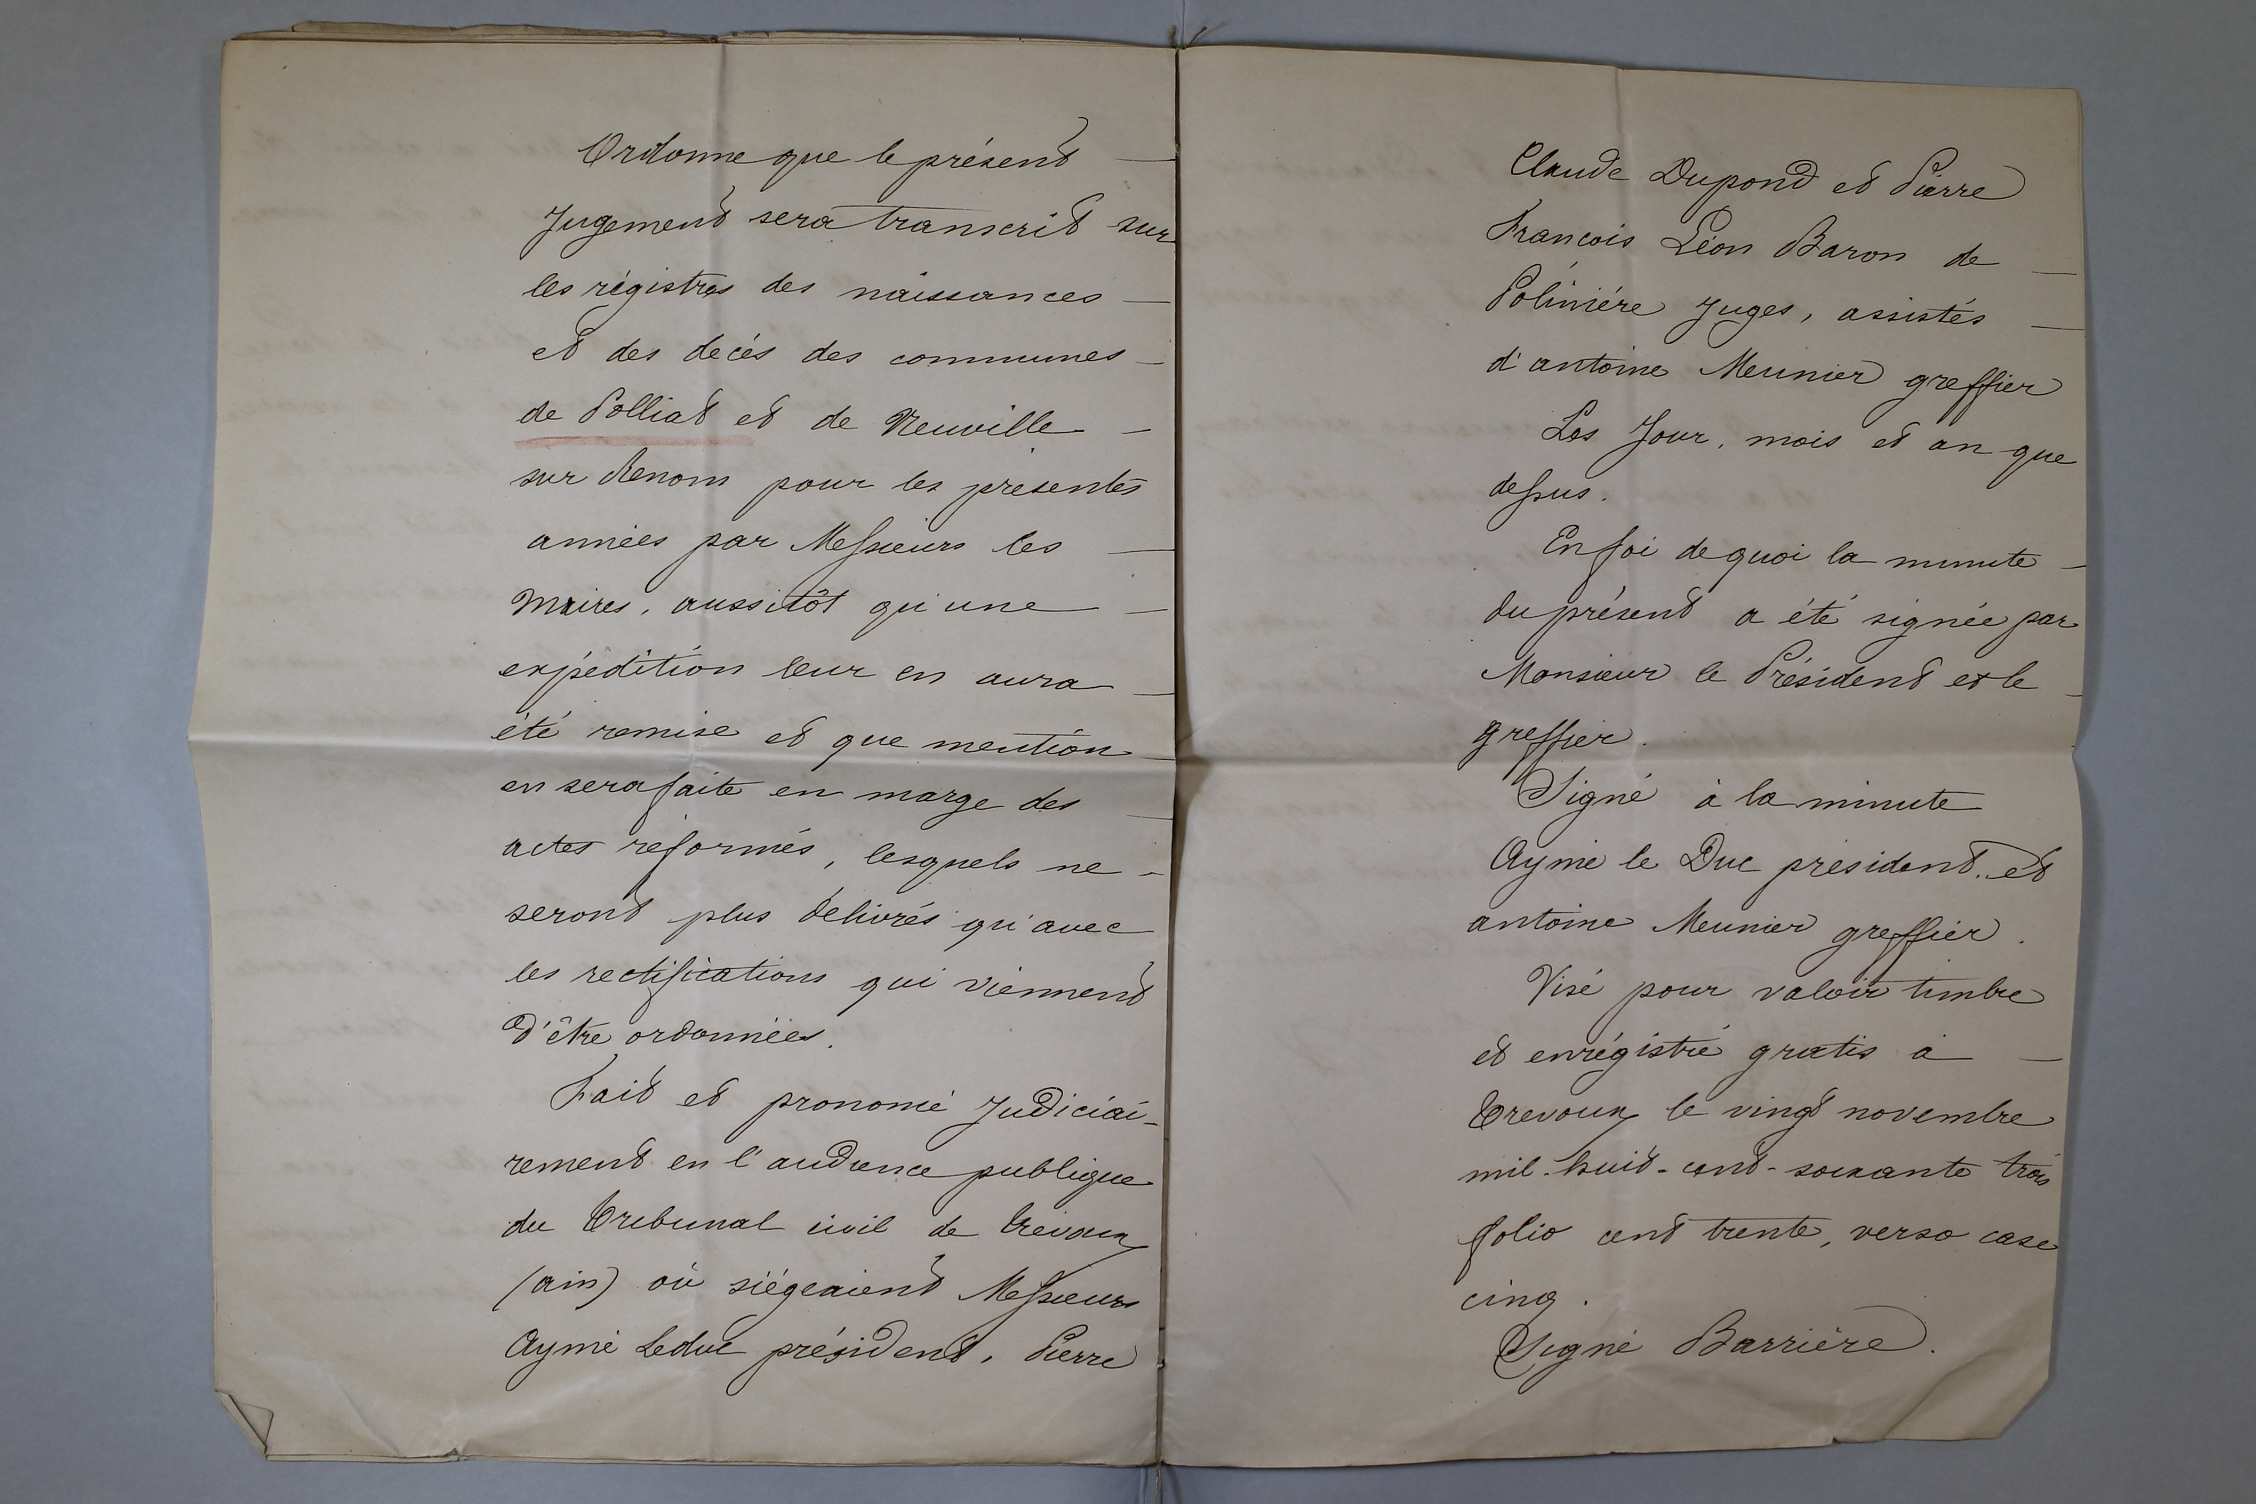 Ordonne que le présent —
Jugement sera transcrit sur
les régistres des naissances —
et des decés des communes —
de Polliat et de Neuville —
sur Renom pour les présentes
années par Messieurs les —
Maires, aussitôt qu'une —
expédition leur en aura —
été remise et que mention —
en sera faite en marge des —
actes réformés, lesquels ne —
seront plus délivrés qu'avec
les rectifications qui viennent
d'être ordonnées.
Fait et prononcé Judiciai-
rement en l'audience publique
du Tribunal civil de Trévoux
(ain) où siégeaient Messieurs
Aymé Leduc président, Pierre
Claude Dupond et Pierre
François Léon Baron de —
Poliniére Juges, assistés —
d'antoine Meunier greffier
Les Jour, mois et an que
dessus.
En foi de quoi la minute —
du présent a été signée par
Monsieur le Président et le —
greffier.
Signé à la minute
Aymé le Duc président. et
antoine Meunier greffier.
Visé pour valoir timbre
et enrégistré gratis à —
Trevoux le vingt novembre
mil-huit-cent-soixante trois
folio cent trente, verso case
cinq.
Signé Barrière.